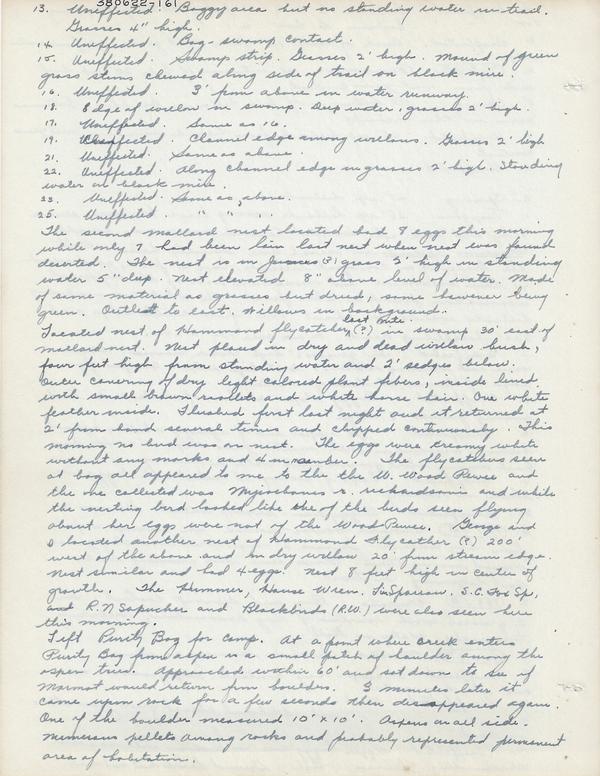 380622-161
13. Uneffected. Boggy area but no standing water in trail.
Grasses 4" high.
14. Uneffected. Bog-swamp contact.
15. Uneffected. Swamp strip. Grasses 2' high. Mound of green
grass stems chewed along side of trail on black mire.
16. Uneffected. 3' from above in water runway.
18. Edge of willow in swamp. Deep water, grasses 2' high.
17. Uneffected. Same as 16.
19. Uneffected. Channel edge among willows. Grasses 2' high
21. Uneffected. Same as above.
22. Uneffected. Along channel edge in grasses 2' high. Standing
water on black mire.
23. Uneffected. Same as above.
25. Uneffected. " " "
The second mallard nest located had 8 eggs this morning
while only 7 had been lain last nest when nest was found
deserted. The nest is in (?) grass 2' high in standing
water 5" deep. Nest elevated 8" above level of water. Made
of same material as grasses but dried, some however being
green. Outlet to east. Willows in background.
Located nest of Hammond flycatcher (?) last nite in swamp 30' east of
mallard nest. Nest placed in dry and dead willow bush,
four feet high from standing water and 2' sedges below.
Outer covering of dry light colored plant fibers, inside lined
with small brown rootlets and white horse hair. One white
feather inside. Flushed first last night and it returned at
2' from hand several times and chipped continuously. This
morning no bird was on nest. The eggs were creamy white
without any marks and 4 in number. The flycatchers seen
at bog all appeared to me to the the W. Wood Pewee and
the one collected was Myiochanes r. richardsonii and while
the nesting bird looked like the of the birds seen flying
about her eggs were not of the Wood Pewee. George and
I located another nest of Hammond Flycatcher (?) 200'
west of the above and in dry willow 20' from stream edge.
Nest similar and had 4 eggs. Nest 8 feet high in center of
growth. The Hummer, House Wren, Sparrow, S.C. Fox Sp,
and R.N Sapsucker and Blackbirds (R.W.) were also seen here
this morning.
Left Purity Bog for camp. At a point where creek enters
Purity Bog from aspen is a small patch of boulder among the
aspen trees. Approached within 60' and sat down to see if
Marmot would return from boulders. 3 minutes later it
came upon rock for a few seconds then disappeared again.
One of the boulder measured 10' x 10'. Aspens on all side.
Numerous pellets among rocks and probably represented permanent
area of habitation.